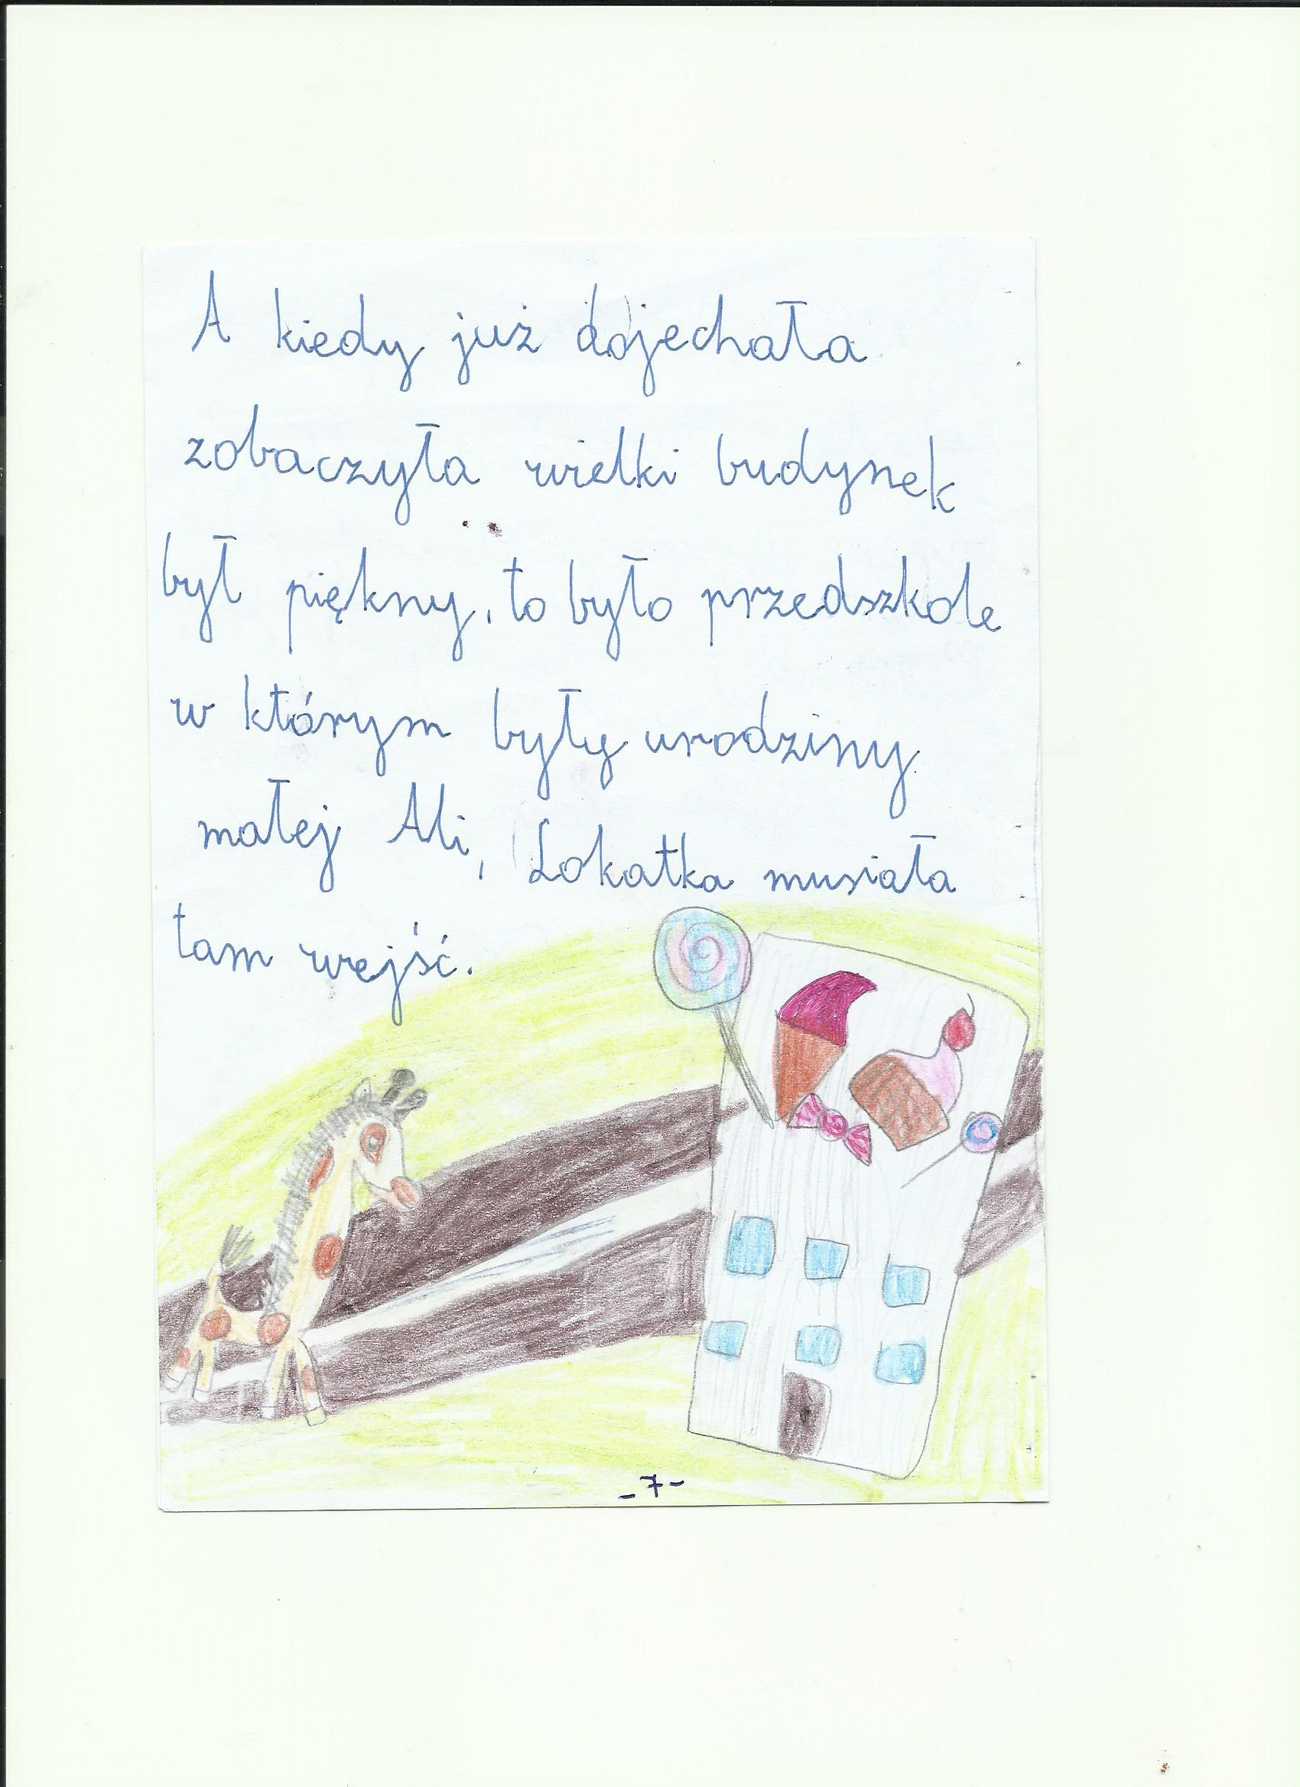 A kiedy już dojechała
zobaczyła wielki budynek
był piękny, to było przedszkole
w którym były urodziny
małej Ali, Lokatka musiała
tam wejść.
-7-